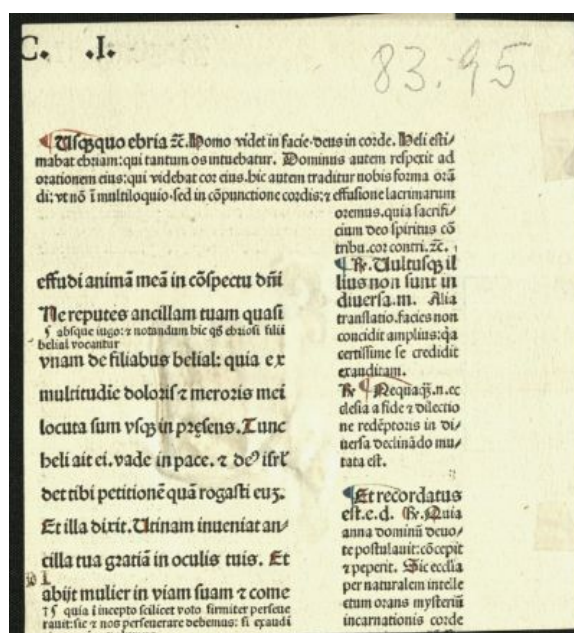 C. .I.
83.95
¶ Usqꝫquo ebria ⁊c. Homo videt in facie·deus in corde. Heli esti/
mabat ebriam: qui tantum os intuebatur. Dominus autem respexit ad
orationem eius: qui videbat cor eius. hic autem traditur nobis forma orā
di: vt nō ī multiloquio·sed in cōpunctione cordis: ⁊ effusione lacrimarum
oremus. quia sacrifi/
cium deo spiritus cō
tribu. cor contri. ⁊c.
effudi animā meā in cōspectu dn̄i
Ne reputes ancillam tuam quasi
¶ absque iugo: ⁊ notandum hic qꝫ ebriosi filii
belial vocantur
vnam de filiabus belial: quia ex
multitudie doloris ⁊ meroris mei
locuta sum vsqꝫ in pręsens. Tunc
heli ait ei. vade in pace. ⁊ de᷒ isrł
det tibi petitionē quā rogasti euꝫ.
Et illa dixit. Utinam inueniat an/
cilla tua gratiā in oculis tuis. Et
abijt mulier in viam suam ⁊ come
¶ quia ī incepto scilicet voto firmiter perseue
rauit: sic ⁊ nos perseuerare debemus: si exaudi
¶ ꝶ. Uultusqꝫ il
lius non sunt in
diuersa. m. Alia
translatio. facies non
concidit amplius: qa
certissime se credidit
exauditam.
ꝶ ¶ Nequaqꝫ. n. ec
clesia a fide ⁊ dilectio
ne redēptoris in di/
uersa declinādo mu/
tata est.
¶ Et recordatus
est. e. d. ꝶ. Quia
anna dominū deuo/
te postulauit: cōcepit
⁊ peperit. Sic ecclia
per naturalem intelle
ctum orans mysteriū
incarnationis corde